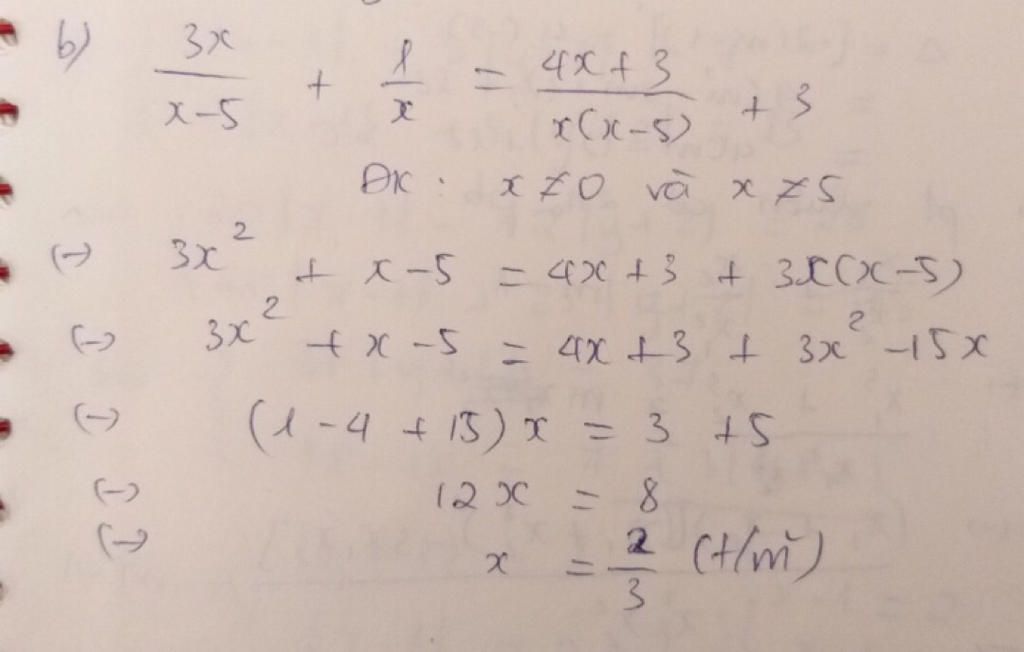 b) 3x/(x-5) + 1/x = (4x+3)/(x(x-5)) + 3
ĐK: x ≠ 0 và x ≠ 5
(->) 3x² + x - 5 = 4x + 3 + 3x(x-5)
(->) 3x² + x - 5 = 4x + 3 + 3x² - 15x
(->) (1 - 4 + 15)x = 3 + 5
(->) 12x = 8
(->) x = 2/3 (t/m)